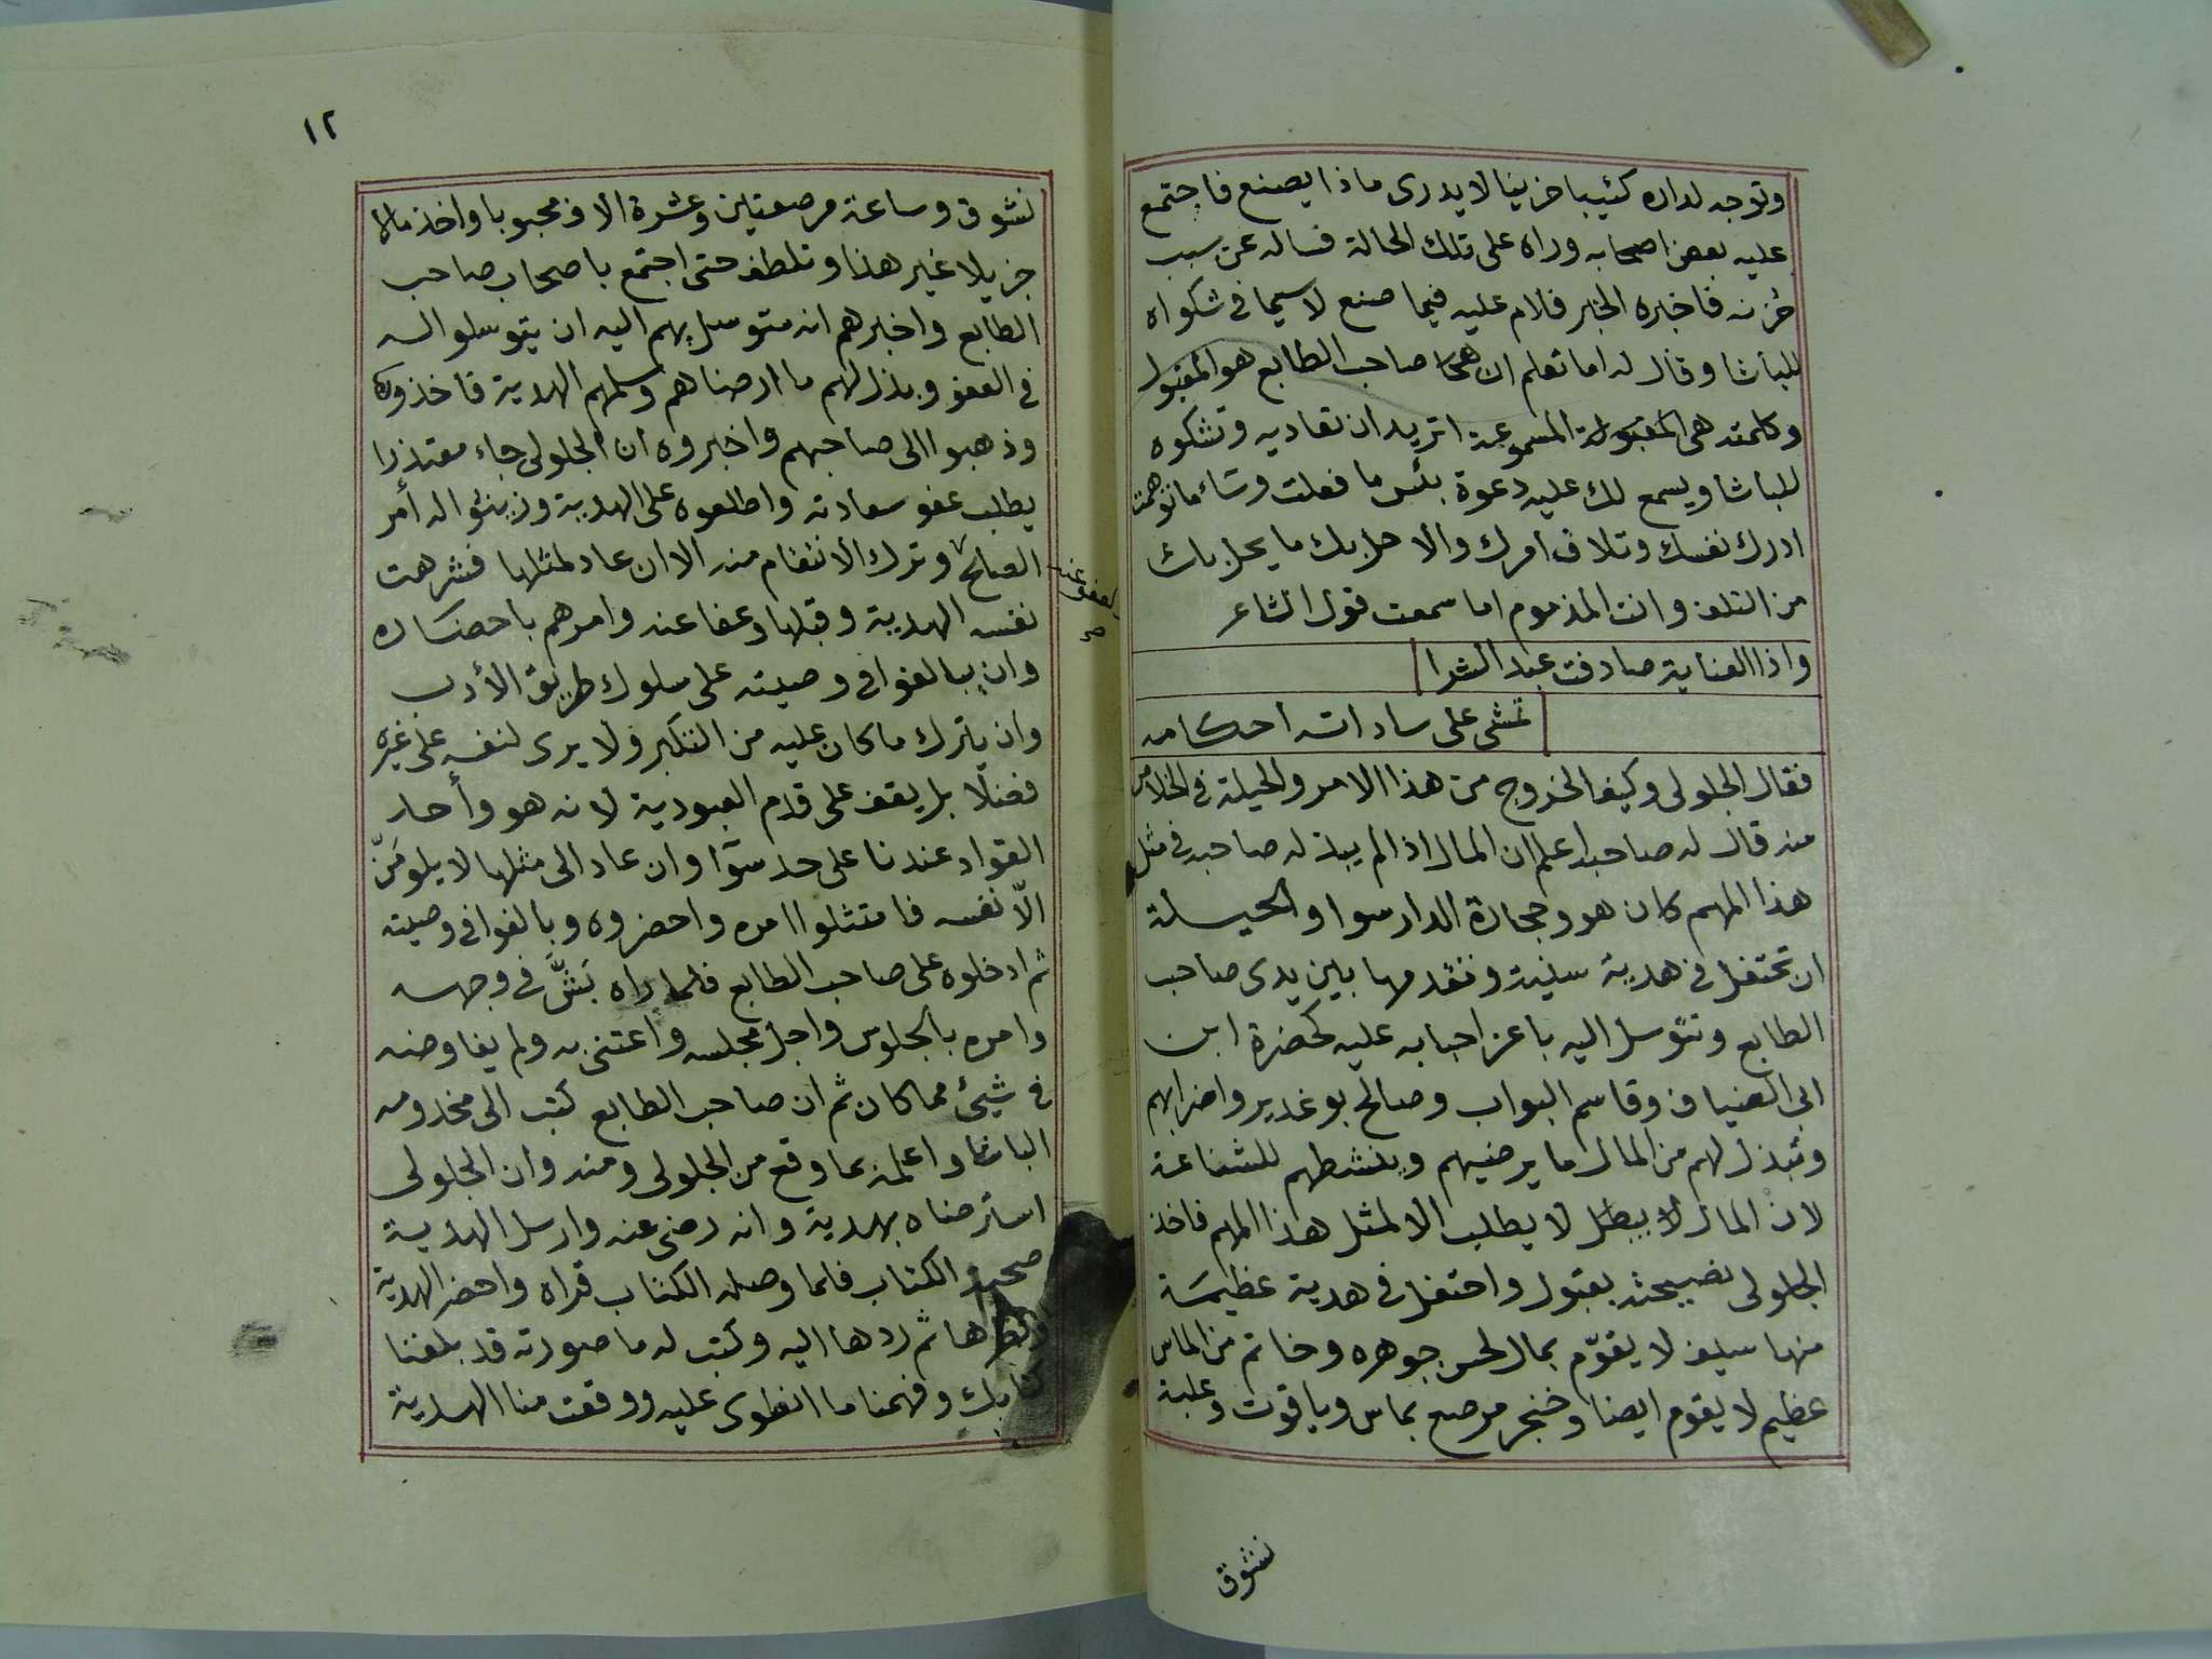 وتوجه لداره كئيبا حزينا لا يدرى ماذا يصنع فاجتمع
عليه بعض اصحابه وراه على تلك الحالة فساله عن سبب
حُزنه فاخبره الخبر فلام عليه فيما صنع لاسيما فى شكواه
للباشا وقال له اما تعلم ان صاحب الطابع هو المقبول
وكلمته هى المقبولة المسموعة اتريد ان تعاديه وتشكوه
للباشا ويسمع لك عليه دعوة بئس ما فعلت وساء ما توهمت
ادرك نفسك وتلاف امرك والا حل بك ما يحل بك
من التلف وانت المذموم اما سمعت قول الشاعر
واذا العناية صادفت عبد الشرا
تمشى على ساداته احكامه
فقال الجلولى وكيف الخروج من هذا الامر والحيلة فى الخلاص
منه قال له صاحبه اعلم ان المال اذا لم يبذله صاحبه فى مثل
هذا المهم كان هو وحجارة الدار سوا والحيلة
ان تحتفل فى هدية سنية وتقدمها بين يدى صاحب
الطابع وتتوسل اليه باعز احبابه عليه كحضرة ابن
ابى الضياف وقاسم البواب وصالح بوغدير واضرابهم
وتبذل لهم من المال ما يرضيهم وينشطهم للشفاعة
لان المال لا يطلب الا لمثل هذا المهم فاخذ
الجلولى نصيحته بقبول واحتفل فى هدية عظيمة
منها سيف لا يقوّم بمال لحسن جوهره وخاتم من الماس
عظيم لا يقوم ايضا وخنجر مرصع بماس وياقوت وعلبة
نشوق
١٢
نشوق وساعة مرصعتين وعشرة الاف محبوبا واخذ مالا
جزيلا غير هذا وتلطف حتى اجتمع باصحاب صاحب
الطابع واخبرهم انه متوسل بهم اليه ان يتوسلوا له
فى العفو وبذل لهم ما ارضاهم وسلمهم الهدية فاخذوها
وذهبوا الى صاحبهم واخبروه ان الجلولى جاء معتذرا
يطلب عفو سعادته واطلعوه على الهدية وزينوا له أمر
الصلح وترك الانتقام منه الا ان عاد لمثلها فشرهت
والعفو عنه صح
نفسه الهدية وقبلها وعفا عنه وامرهم باحضاره
وان يبالغوا فى وصيته على سلوك طريق الأدب
وان يترك ما كان عليه من التكبر ولا يرى لنفسه على غيره
فضلا بل يقف على قدم العبودية لانه هو وأحد
القواد عندنا على حد سوّا وان عاد الى مثلها لا يلومَنّ
الّا نفسه فامتثلوا امره واحضروه وبالغوا فى وصيته
ثم ادخلوه على صاحب الطابع فلما راه بَشَّ فى وجهه
وامره بالجلوس واجل مجلسه واعتنى به ولم يفاوضه
فى شيئ مما كان ثم ان صاحب الطابع كتب الى مخدومه
الباشا واعلمه بما وقع من الجلولى ومنه وان الجلولى
استرضاه بهدية وانه رضى عنه وارسل الهدية
صحبة الكتاب فلما وصله الكتاب قراه واحضر الهدية
ونظرها ثم ردها اليه وكتب له ما صورته قد بلغنا
كتابك وفهمنا ما انطوى عليه ووقعت منا الهدية